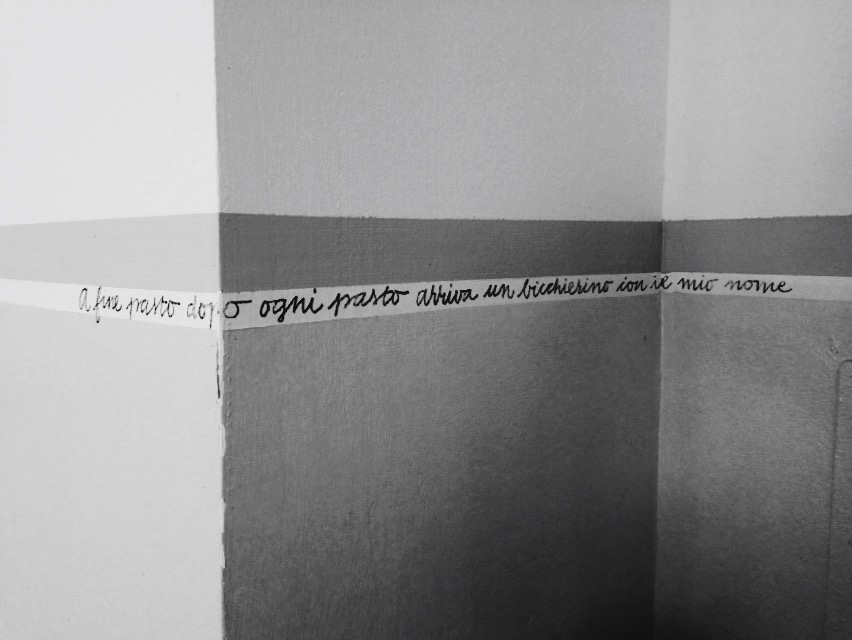 A fine pasto dopo ogni pasto arriva un bicchierino con il mio nome